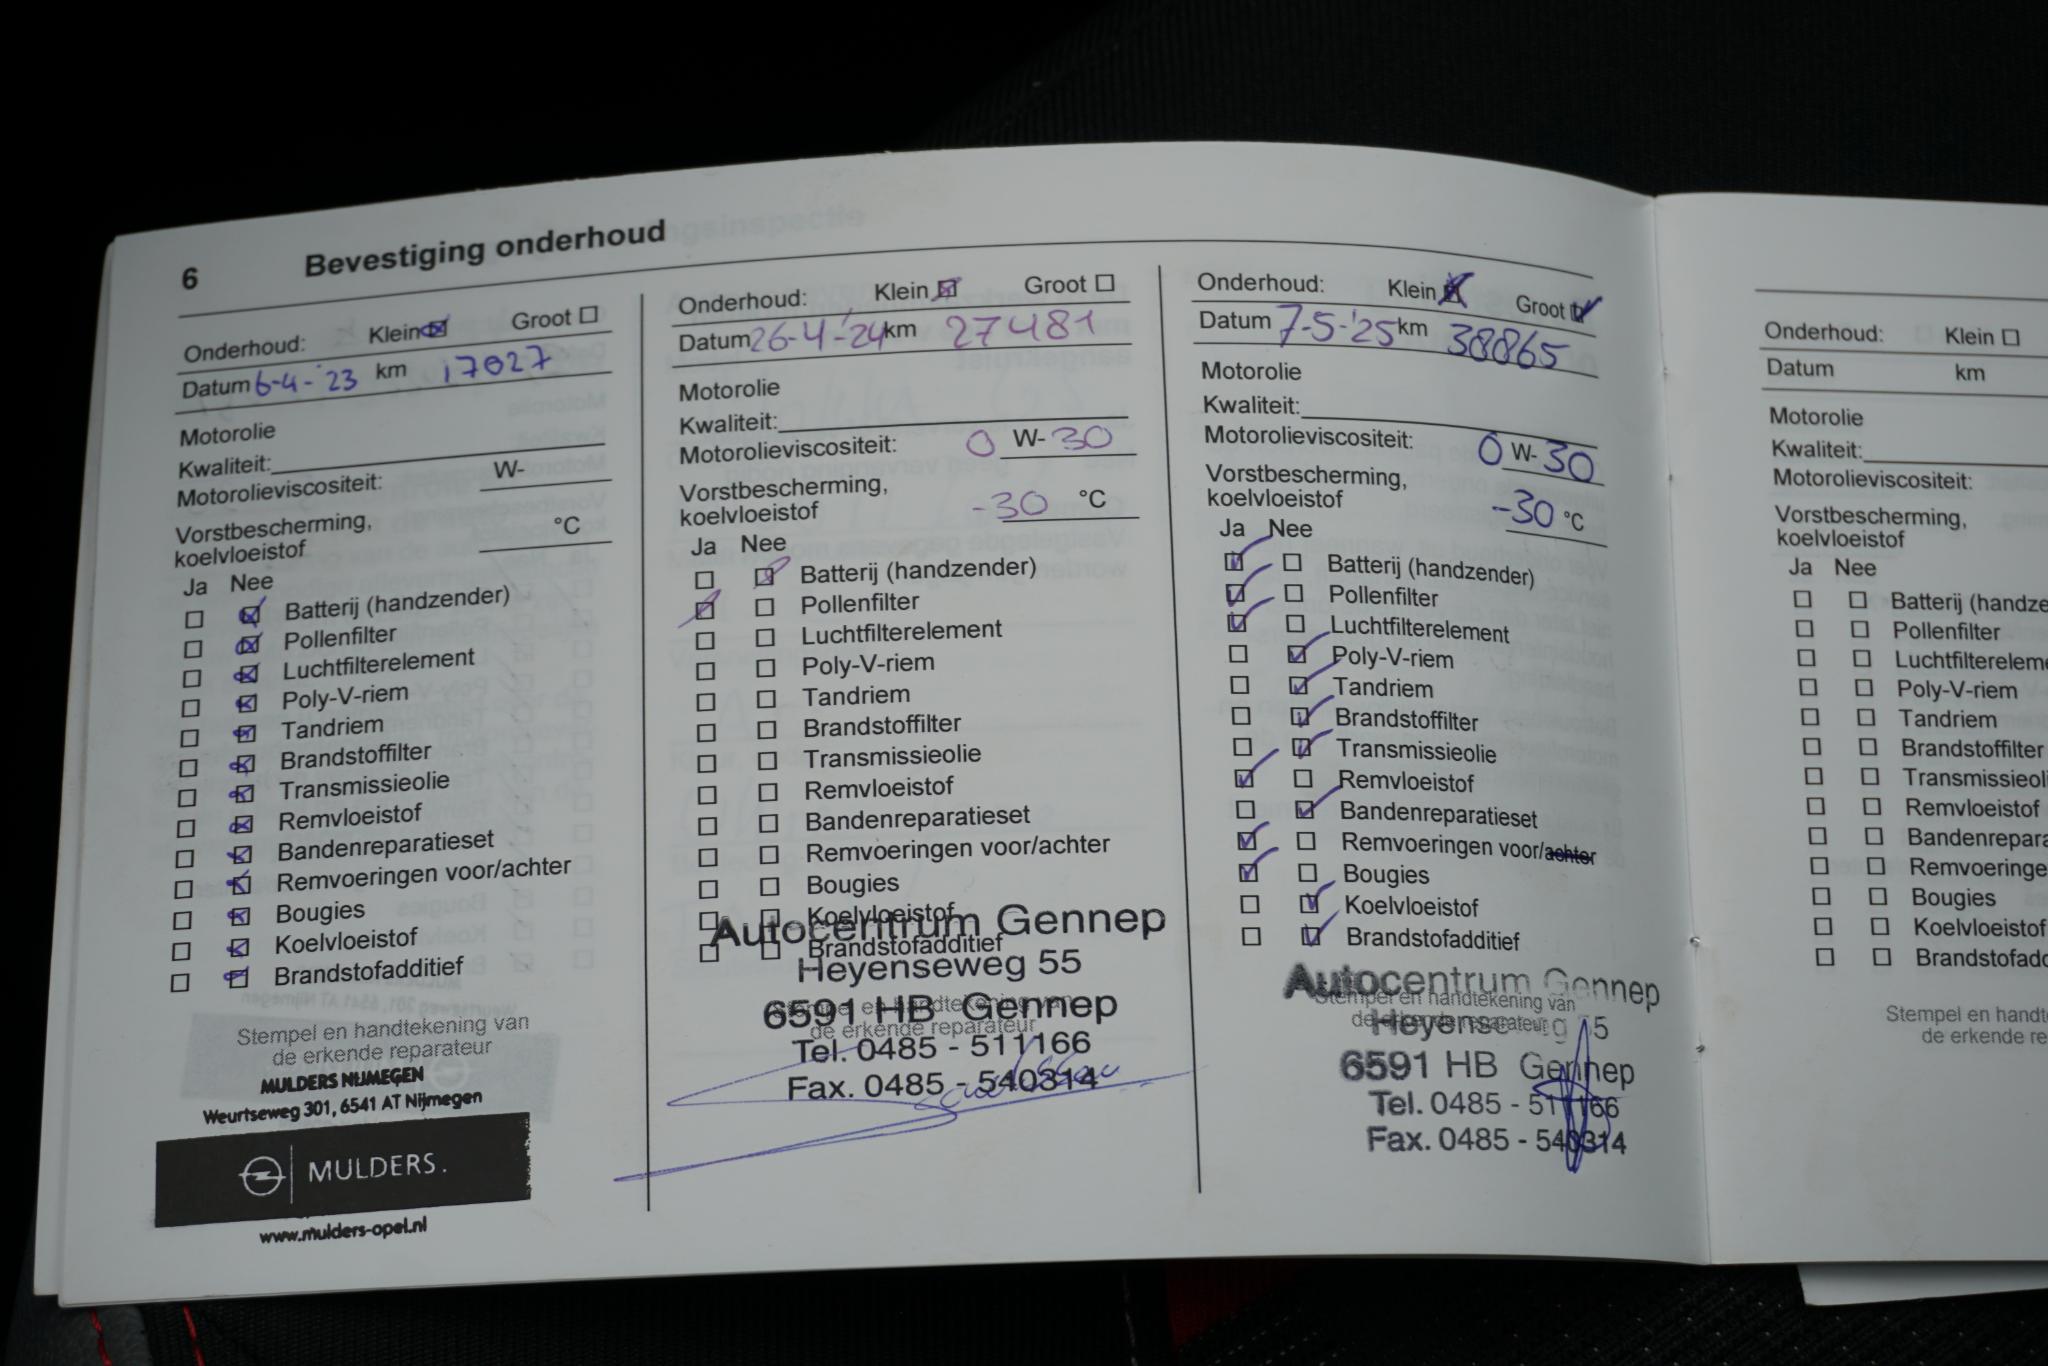 6 Bevestiging onderhoud
Onderhoud: Klein Groot
Datum 6-4-'23 km 17027
Motorolie
Kwaliteit:
Motorolieviscositeit: W-
Vorstbescherming,
koelvloeistof °C
Ja Nee
Batterij (handzender)
Pollenfilter
Luchtfilterelement
Poly-V-riem
Tandriem
Brandstoffilter
Transmissieolie
Remvloeistof
Bandenreparatieset
Remvoeringen voor/achter
Bougies
Koelvloeistof
Brandstofadditief
Stempel en handtekening van
de erkende reparateur
MULDERS NIJMEGEN
Weurtseweg 301, 6541 AT Nijmegen
MULDERS.
www.mulders-opel.nl
Onderhoud: Klein Groot
Datum 26-4-'24 km 27481
Motorolie
Kwaliteit:
Motorolieviscositeit: 0 W-30
Vorstbescherming,
koelvloeistof -30 °C
Ja Nee
Batterij (handzender)
Pollenfilter
Luchtfilterelement
Poly-V-riem
Tandriem
Brandstoffilter
Transmissieolie
Remvloeistof
Bandenreparatieset
Remvoeringen voor/achter
Bougies
Koelvloeistof
Autocentrum Gennep
Brandstofadditief
Heyenseweg 55
Stempel en handtekening van
6591 HB Gennep
de erkende reparateur
Tel. 0485 - 511166
Fax. 0485 - 540314
Onderhoud: Klein Groot
Datum 7-5-'25 km 38865
Motorolie
Kwaliteit:
Motorolieviscositeit: 0 W-30
Vorstbescherming,
koelvloeistof -30 °C
Ja Nee
Batterij (handzender)
Pollenfilter
Luchtfilterelement
Poly-V-riem
Tandriem
Brandstoffilter
Transmissieolie
Remvloeistof
Bandenreparatieset
Remvoeringen voor/achter
Bougies
Koelvloeistof
Brandstofadditief
Autocentrum Gennep
Stempel en handtekening van
de erkende reparateur
Heyenseweg 55
6591 HB Gennep
Tel. 0485 - 511166
Fax. 0485 - 540314
Onderhoud: Klein
Datum km
Motorolie
Kwaliteit:
Motorolieviscositeit:
Vorstbescherming,
koelvloeistof
Ja Nee
Batterij (handze
Pollenfilter
Luchtfiltereleme
Poly-V-riem
Tandriem
Brandstoffilter
Transmissieoli
Remvloeistof
Bandenrepara
Remvoeringe
Bougies
Koelvloeistof
Brandstofadd
Stempel en handt
de erkende re